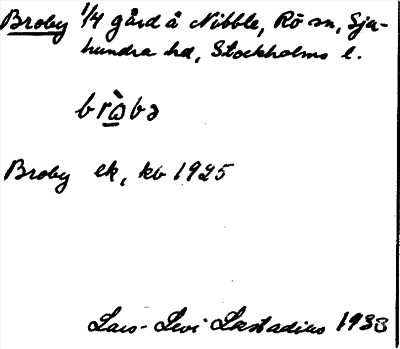 Broby 1/4 gård å Nibble, Rö sn, Sju-
hundra hd, Stockholms l.
brὼ̱bə
Broby ek, kb 1925
Lars-Levi Læstadius 1933